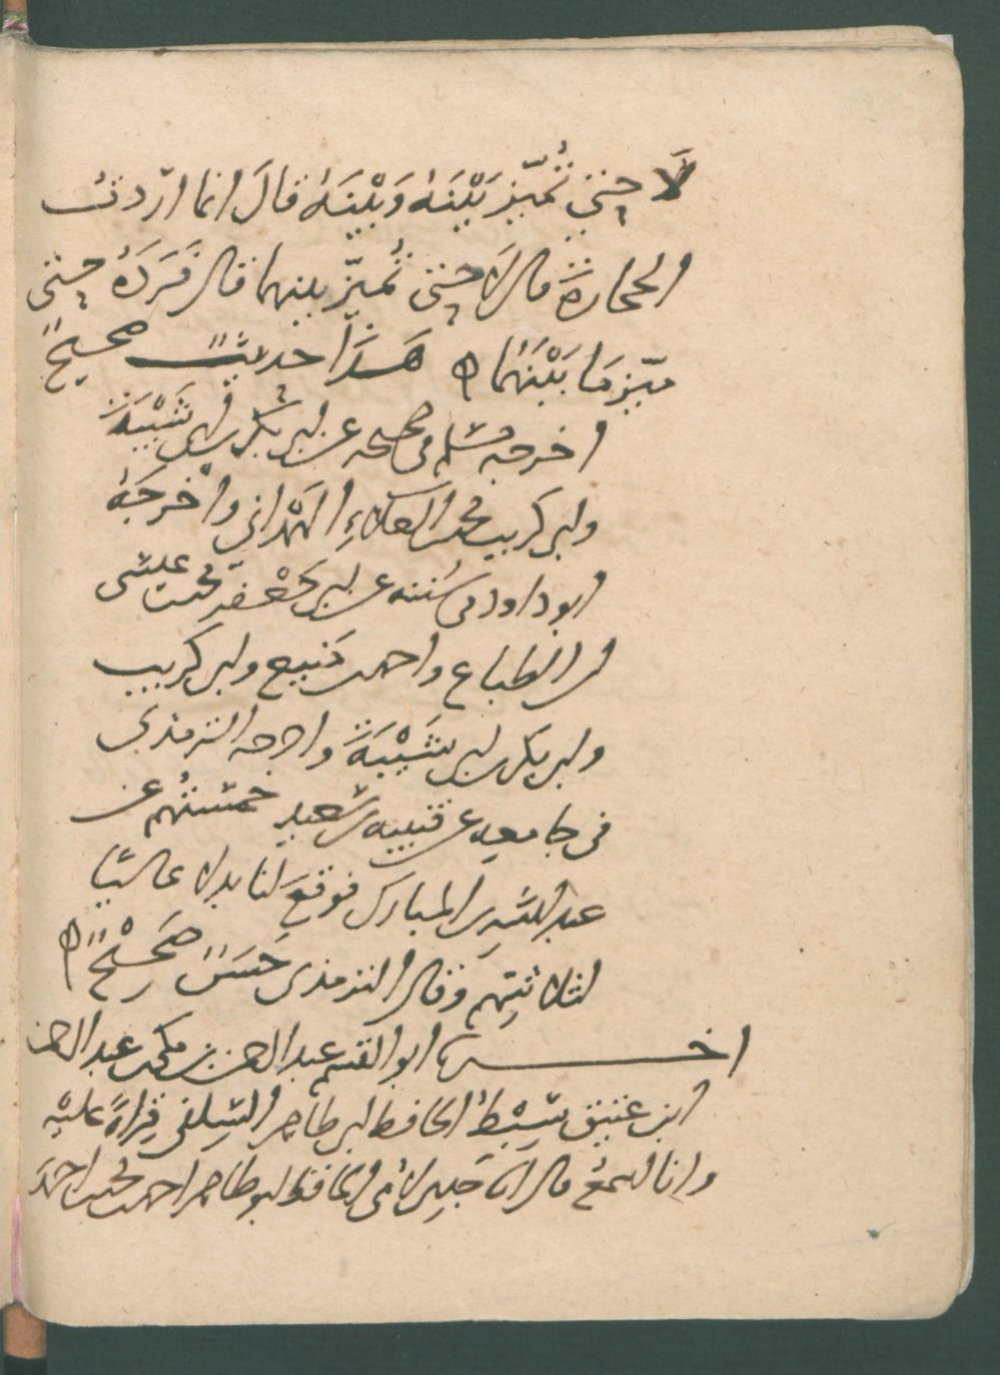 لَا حتى تُميّز بَيْنَهُ وَبَيْنَهُ قالَ انما اردتُ
الحجارة قال لا حتى تُميّز بينهما قال فَرَدَّهُ حتى
ميّز مَا بَيْنَهُمَا ه هَذَا حديثٌ صحيحٌ
اخرجه مسلم في صحيحه عن ابي بكر بن ابي شَيْبَةَ
وابي كريب محمد بن العلاءِ الهَمْداني وأخرجَهُ
ابو داود في سُننه عن ابي جَعْفر محمد بن عيسى
بن الطباع واحمد بن منيع وابي كريب
وابي بكر بن ابي شَيْبَةَ واخرجه الترمذي
في جامعه عن قتيبه بن سَعيدٍ خمستُهم عن
عبد اللهِ بن المبارك فوقعَ لنا بدلا عاليًا
لثلاثتِهم وقال الترمذي حَسَنٌ صَحِيْحٌ ه
اخـــبرنا ابو القسم عبد الرحمن بن مكي بن عبد الرحمن
ابن عتيق سِبْطُ الحافظ ابي طاهر السِّلفي قِراةً عليه
وانا اسمعُ قال انا جَدِّي لأُمّي الحافظ ابو طاهر احمد بن محمد بن احمدَ